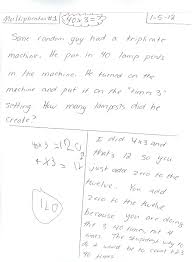 Multiplication #3 40x3=? 1-5-12
Some random guy had a triplicate
machine. He put in 40 lamp posts
in the machine. He turned on the
machine and put it on the "times 3"
setting. How many lampposts did he
create?
40x3=120
4x3=12
120
I did 4x3 and
thats 12 so you
just add zero to the
twelve. You add
zero to the twelve
because you are doing
the 3, 40 times, not 4
times. The way to
do it would be to count by 3
40 times